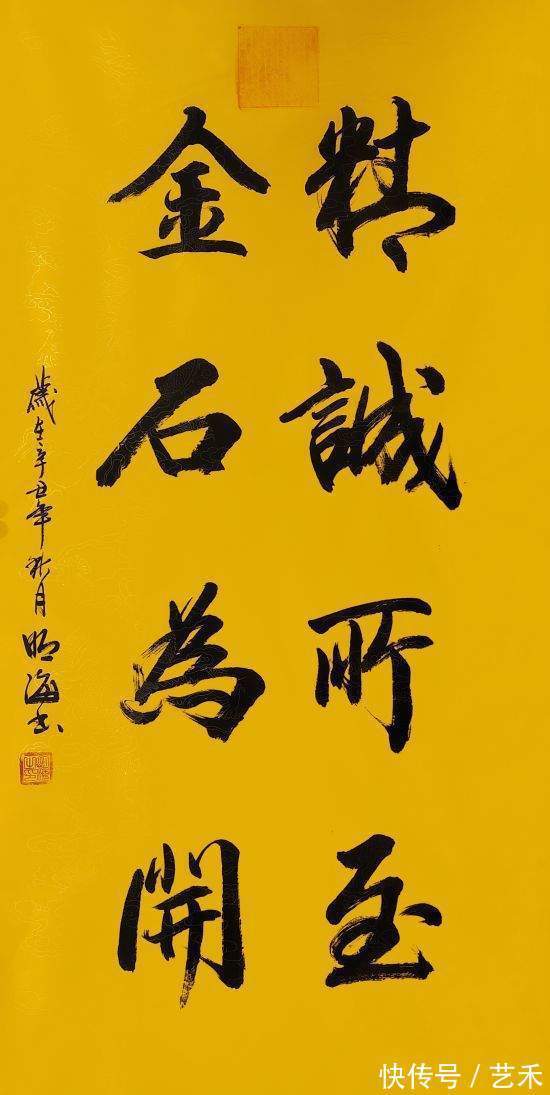 精誠所至
金石為開
歲在辛丑年秋月明海书
快传号 / 艺禾